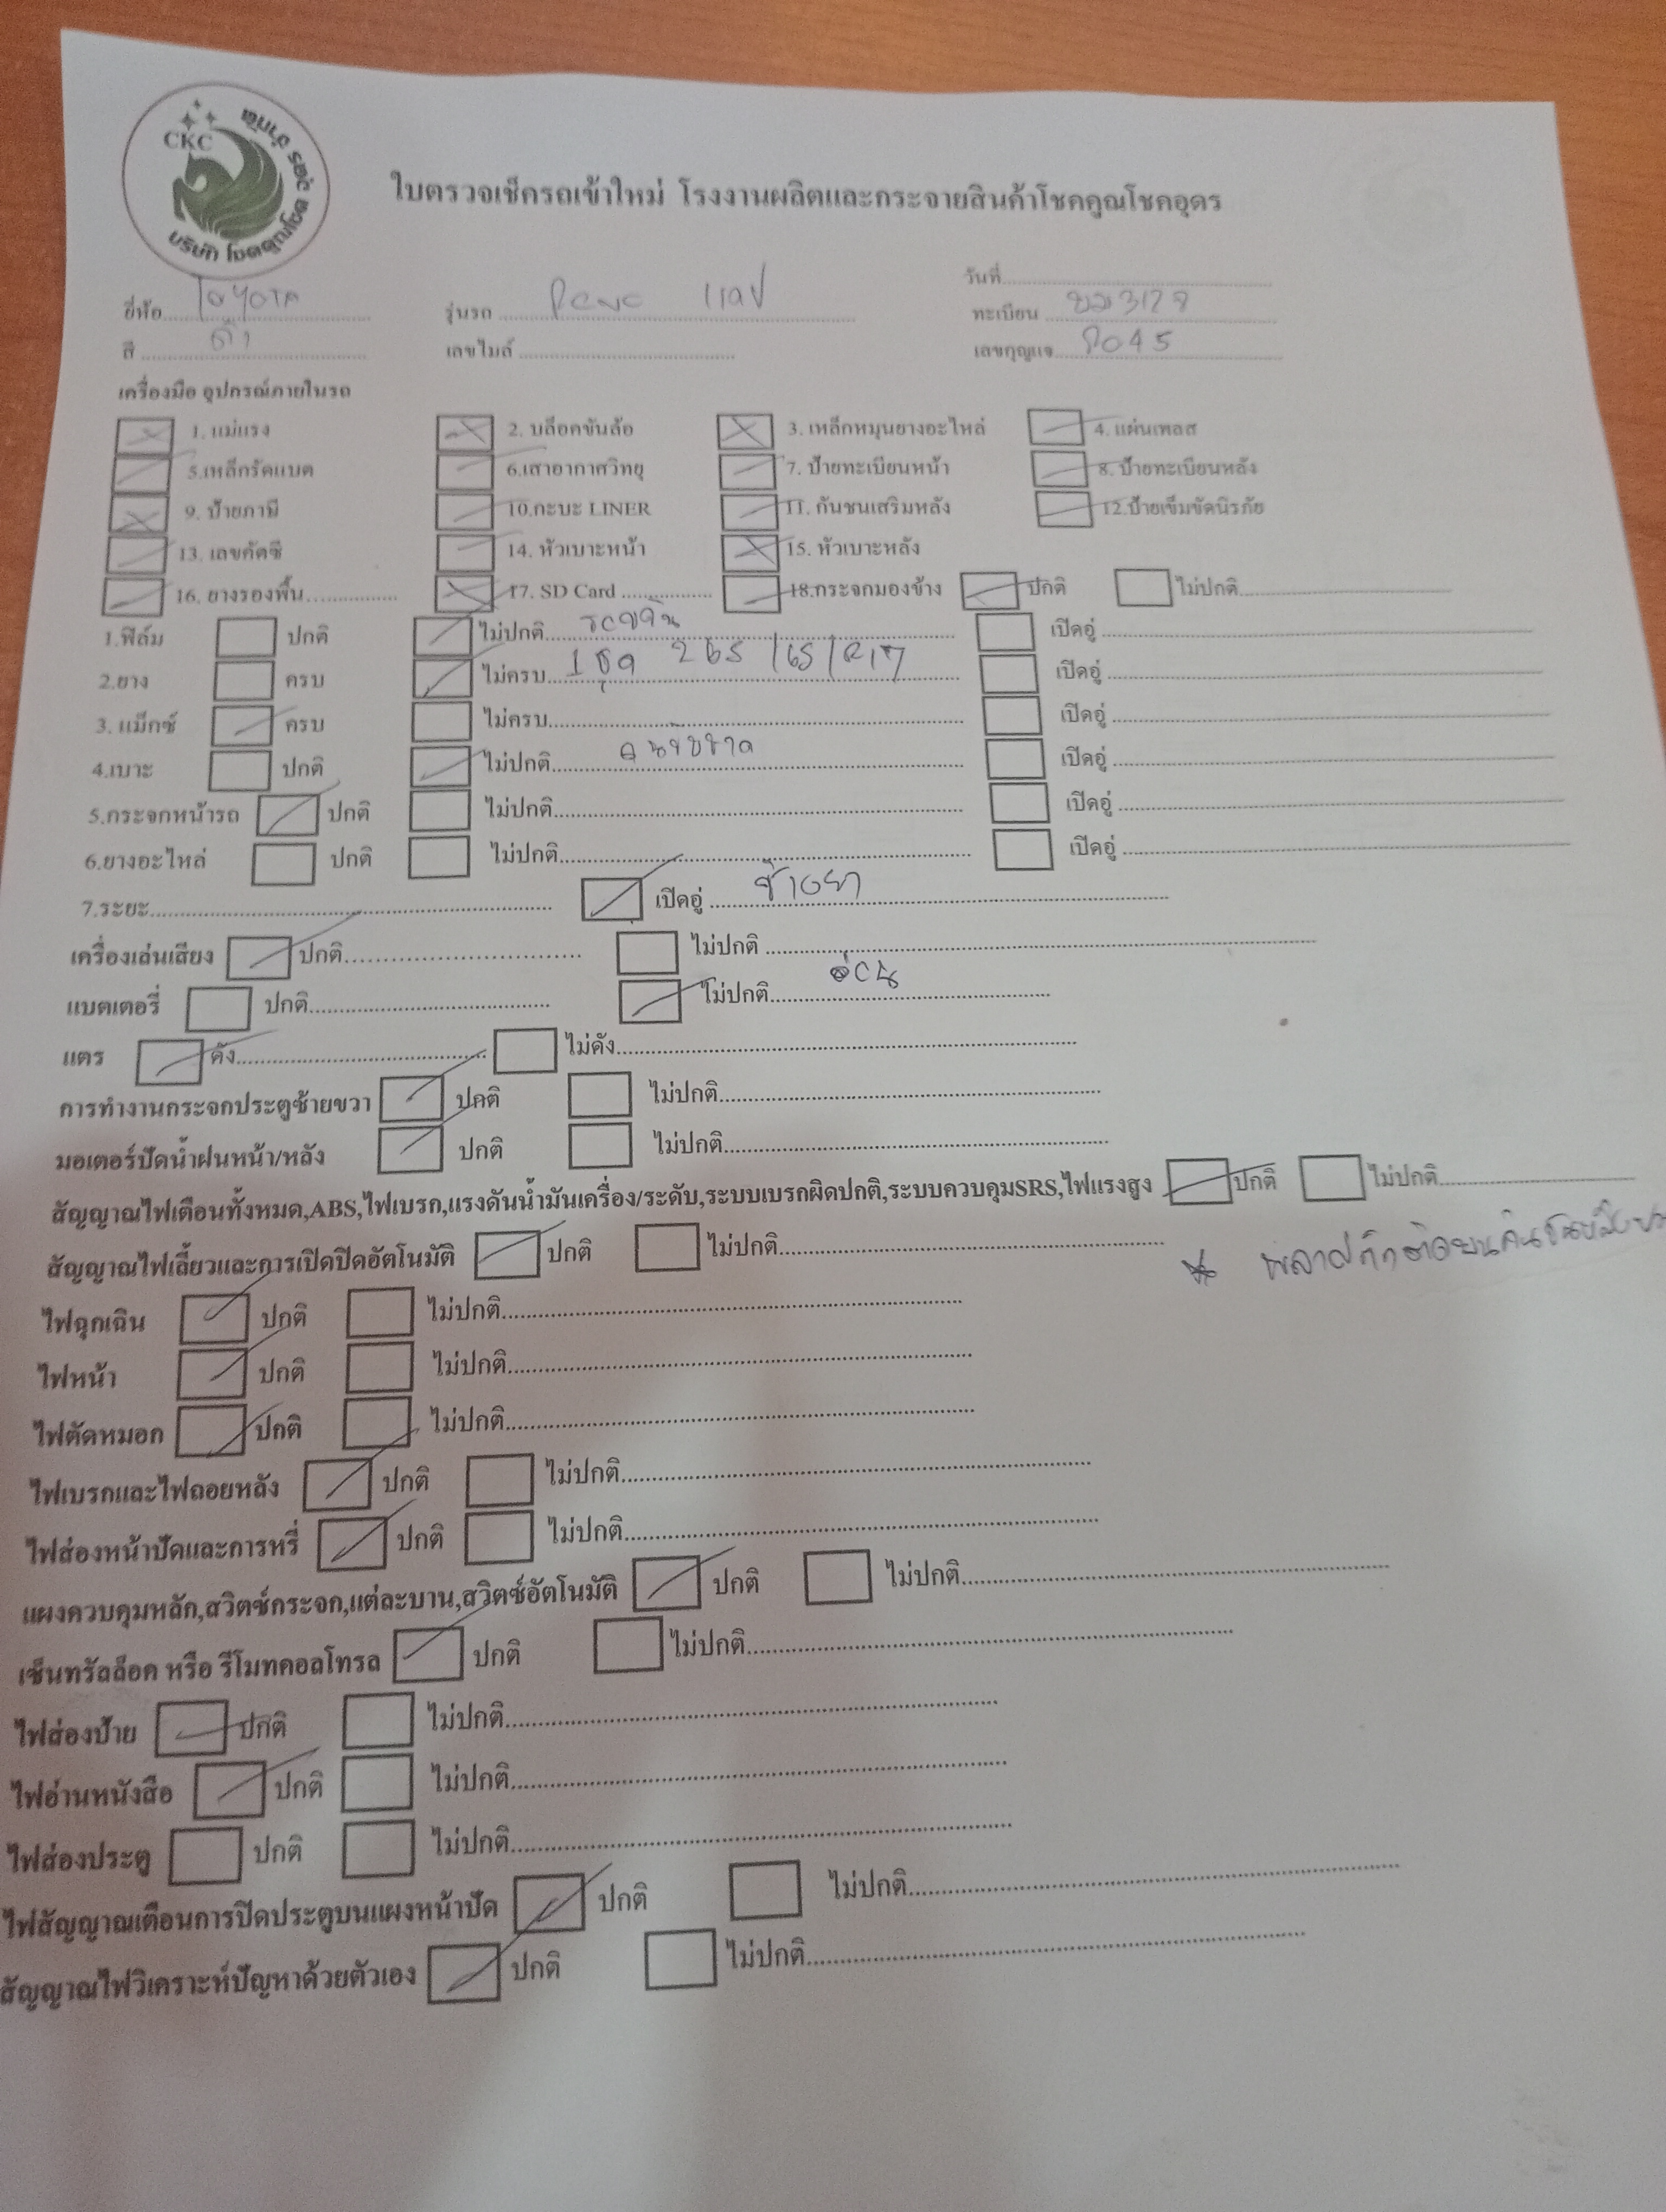 CKC
บริษัท โชคคูณโชค อุดร จำกัด
ใบตรวจเช็ครถเข้าใหม่ โรงงานผลิตและกระจายสินค้าโชคคูณโชคอุดร
วันที่
ยี่ห้อ TOYOTA รุ่นรถ แคป ทะเบียน
สี ดำ เลขไมล์ เลขกุญแจ
เครื่องมือ อุปกรณ์ภายในรถ
1. แม่แรง 2. บล็อคขันล้อ 3. เหล็กหมุนยางอะไหล่ 4. แผ่นเพลส
5.เหล็กรัดแบต 6.เสาอากาศวิทยุ 7. ป้ายทะเบียนหน้า 8. ป้ายทะเบียนหลัง
9. ป้ายภาษี 10.กะบะ LINER 11. กันชนเสริมหลัง 12.ป้ายเข็มขัดนิรภัย
13. เลขคัตซี 14. หัวเบาะหน้า 15. หัวเบาะหลัง
16. ยางรองพื้น 17. SD Card 18.กระจกมองข้าง ปกติ ไม่ปกติ
1.ฟิล์ม ปกติ ไม่ปกติ เปิดอู่
2.ยาง ครบ ไม่ครบ 1 ชุด 265/65/R17 เปิดอู่
3. แม็กซ์ ครบ ไม่ครบ เปิดอู่
4.เบาะ ปกติ ไม่ปกติ เปิดอู่
5.กระจกหน้ารถ ปกติ ไม่ปกติ เปิดอู่
6.ยางอะไหล่ ปกติ ไม่ปกติ เปิดอู่
7.ระยะ เปิดอู่
เครื่องเล่นเสียง ปกติ ไม่ปกติ
แบตเตอรี่ ปกติ ไม่ปกติ อ่อน
แตร ดัง ไม่ดัง
การทำงานกระจกประตูซ้ายขวา ปกติ ไม่ปกติ
มอเตอร์ปัดน้ำฝนหน้า/หลัง ปกติ ไม่ปกติ
สัญญาณไฟเตือนทั้งหมด,ABS,ไฟเบรก,แรงดันน้ำมันเครื่อง/ระดับ,ระบบเบรกผิดปกติ,ระบบควบคุมSRS,ไฟแรงสูง ปกติ ไม่ปกติ
สัญญาณไฟเลี้ยวและการเปิดปิดอัตโนมัติ ปกติ ไม่ปกติ
ไฟฉุกเฉิน ปกติ ไม่ปกติ
ไฟหน้า ปกติ ไม่ปกติ
ไฟตัดหมอก ปกติ ไม่ปกติ
ไฟเบรกและไฟถอยหลัง ปกติ ไม่ปกติ
ไฟส่องหน้าปัดและการหรี่ ปกติ ไม่ปกติ
แผงควบคุมหลัก,สวิตซ์กระจก,แต่ละบาน,สวิตซ์อัตโนมัติ ปกติ ไม่ปกติ
เซ็นทรัลล็อค หรือ รีโมทคอลโทรล ปกติ ไม่ปกติ
ไฟส่องป้าย ปกติ ไม่ปกติ
ไฟอ่านหนังสือ ปกติ ไม่ปกติ
ไฟส่องประตู ปกติ ไม่ปกติ
ไฟสัญญาณเตือนการปิดประตูบนแผงหน้าปัด ปกติ ไม่ปกติ
สัญญาณไฟวิเคราะห์ปัญหาด้วยตัวเอง ปกติ ไม่ปกติ